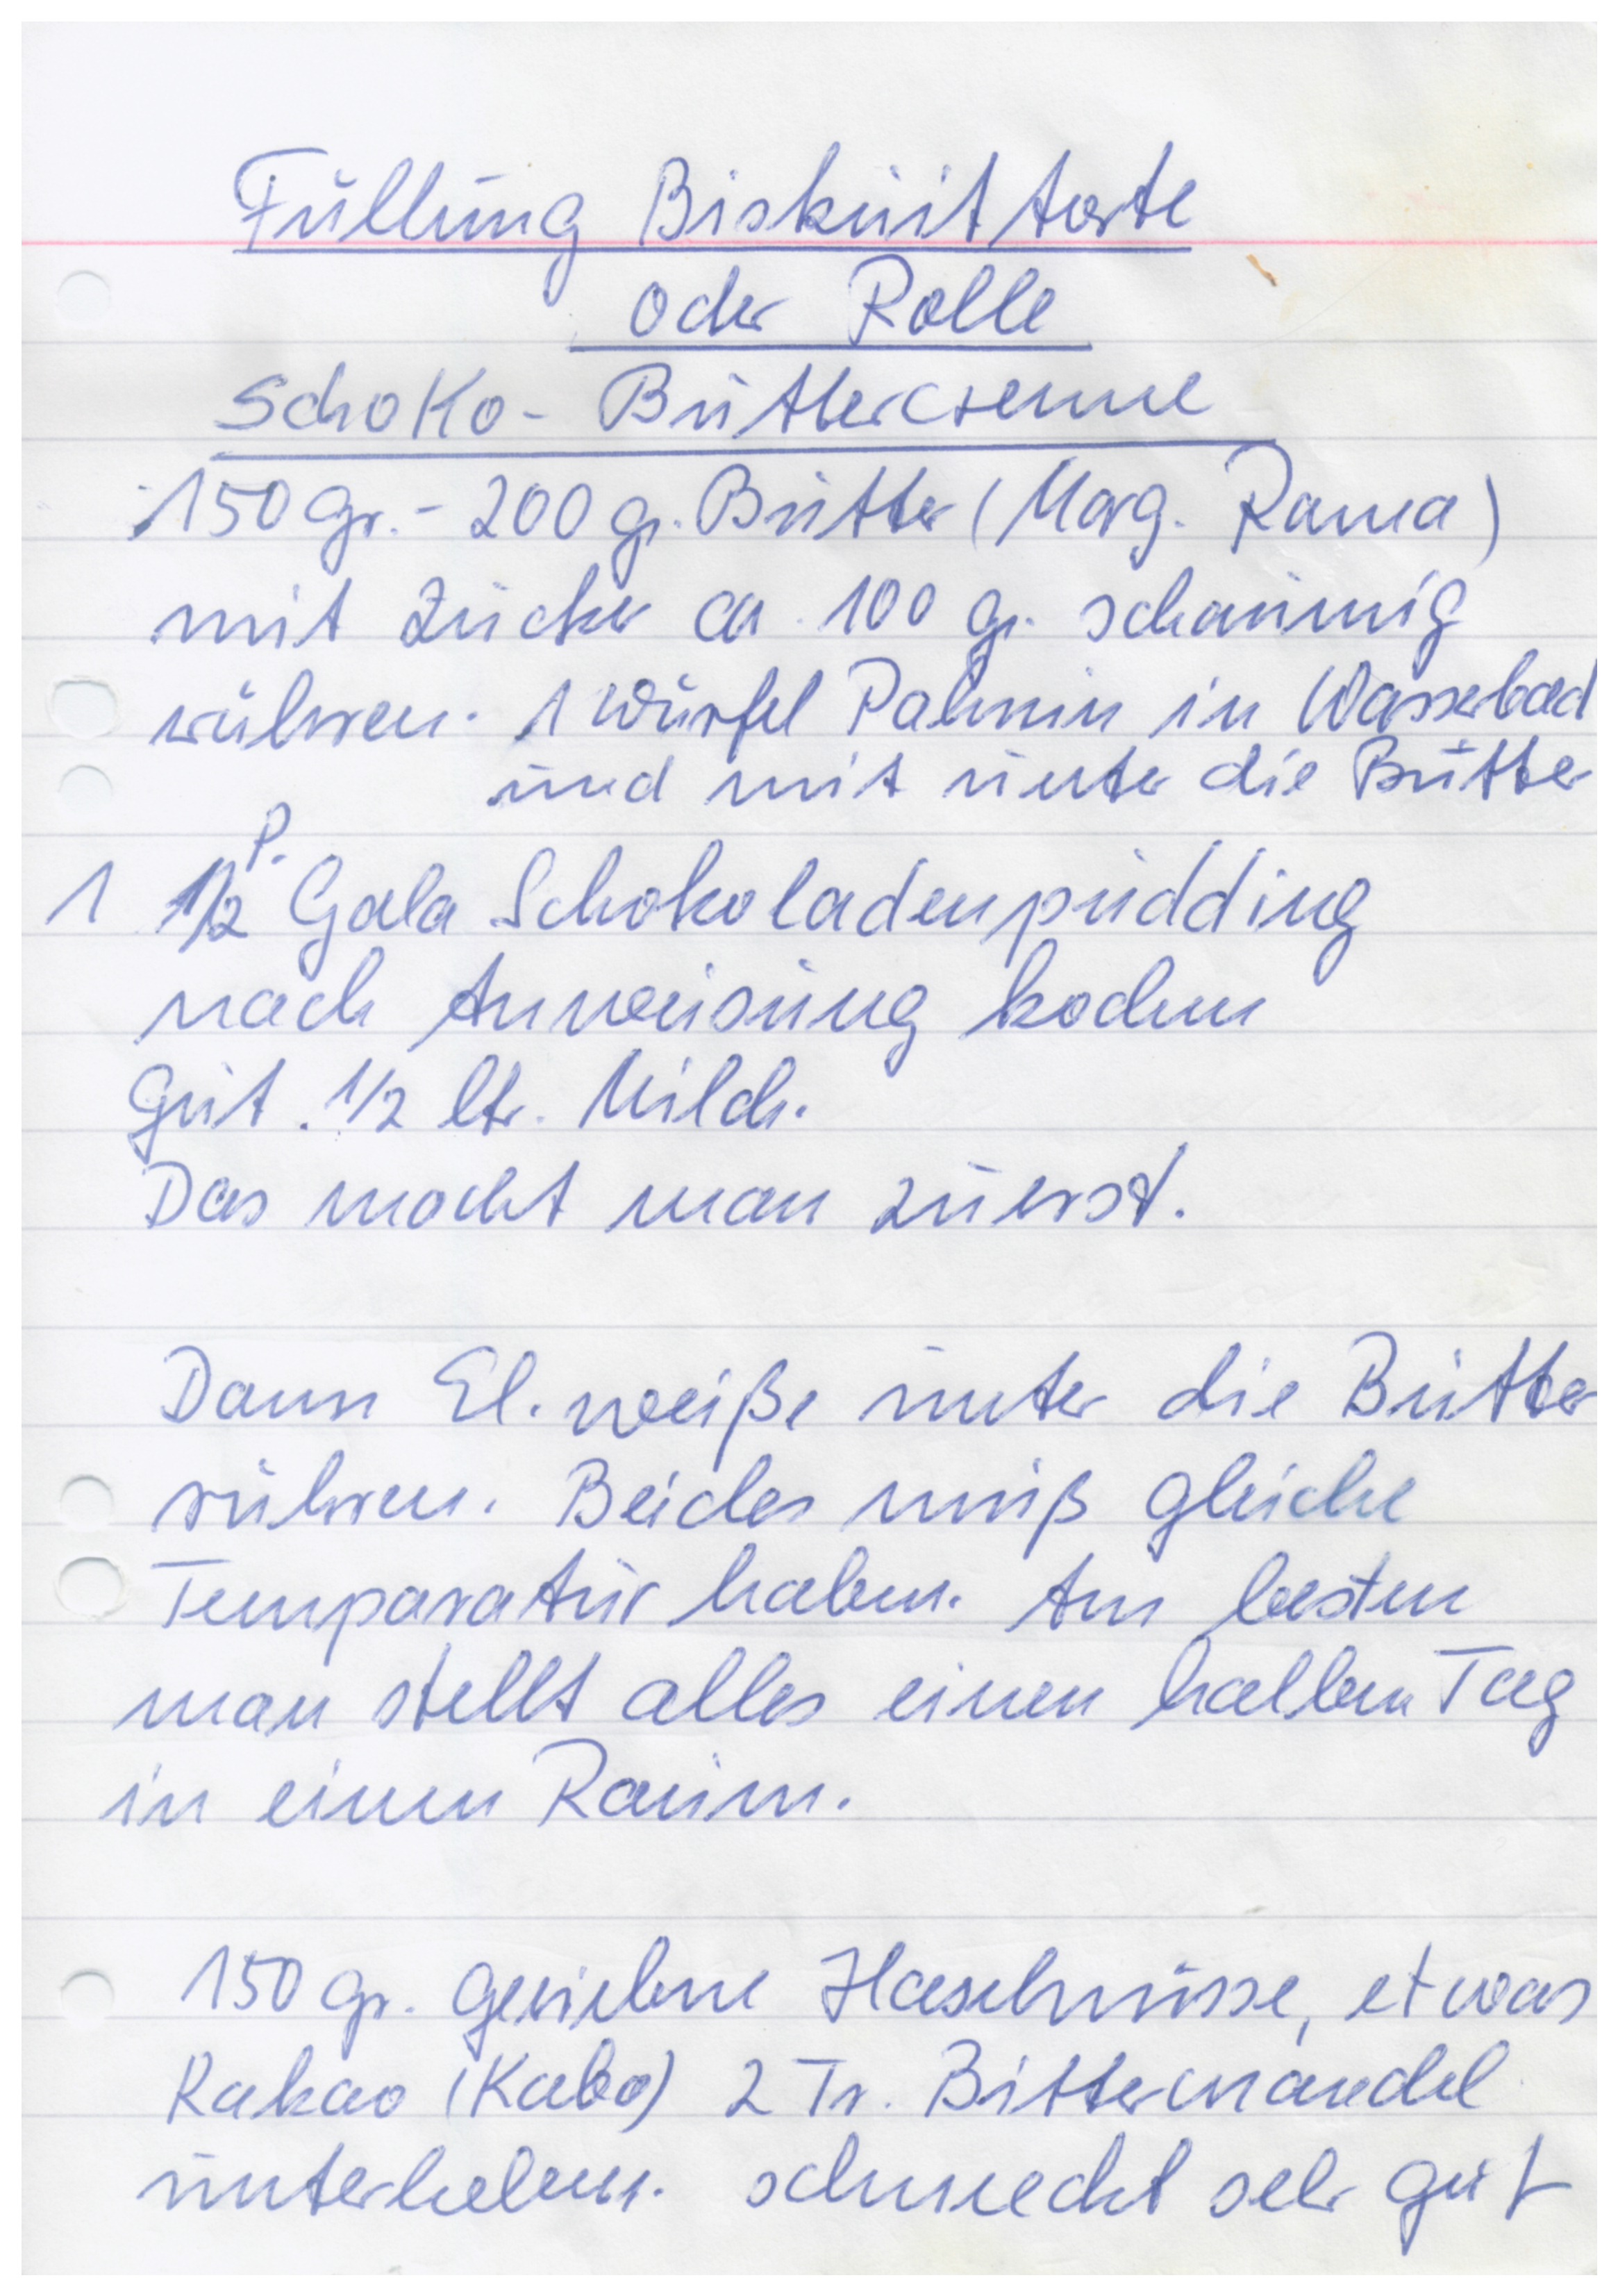 Füllung Biskuittorte
oder Rolle
Schoko-Buttercreme
150 gr. - 200 gr. Butter (Marg. Rama)
mit Zucker ca. 100 gr. schaumig
rühren. 1 Würfel Palmin in Wasserbad
und mit unter die Butter
1 1/2 P. Gala Schokoladenpudding
nach Anweisung kochen
Gut. 1/2 ltr. Milch.
Das macht man zuerst.
Dann El. weiße unter die Butter
rühren. Beides muß gleiche
Temparatur haben. Am besten
man stellt alles einen halben Tag
in einen Raum.
150 gr. geriebene Haselnüsse, etwas
Kakao (Kaba) 2 Tr. Bittermandel
unterheben. schmeckt sehr gut